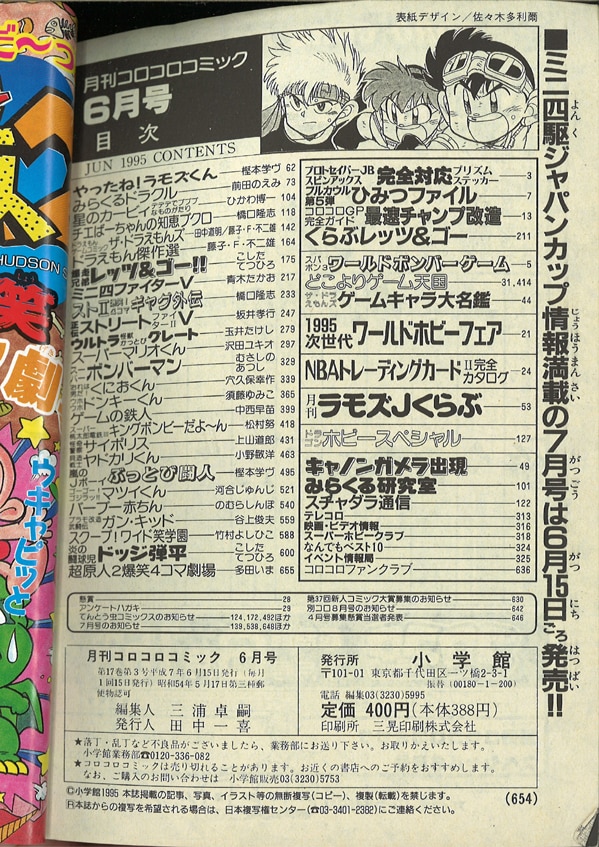 表紙デザイン/佐々木多利爾
月刊コロコロコミック
6月号
目次
JUN 1995 CONTENTS
やったね!ラモズくん 樫本学ヴ 62
みらくるドラクル 前田のえみ 73
星のカービィ デデデでプププなものがたり ひかわ博一 104
チエばーちゃんの知恵ブクロ 橋口隆志 118
ザ・ドラえもんズ 田中道明/藤子・F・不二雄 142
ドラえもん傑作選 藤子・F・不二雄 164
爆走兄弟レッツ&ゴー!! こしたてつひろ 175
ミニ四ファイターV 青木たかお 211
ストII ギャグ外伝 橋口隆志 233
ストリートファイターII V 坂井孝行 247
ウルトラ怪獣かっとび グレート 玉井たけし 279
スーパーマリオくん 沢田ユキオ 297
ボンバーマン むさしのあつし 329
くにおくん 穴久保幸作 339
ドンキーくん 須藤ゆみこ 365
ゲームの鉄人 中西早苗
キングボンビーだよ~ん 松村努
サイポリス 上山道郎
ヤドカリくん 小野敬洋
ぶっとび闘人 樫本学ヴ 495
マツイくん 河合じゅんじ 521
バーブー赤ちん のむらしんぼ 540
ガン・キッド 谷上俊夫
スクープ!ワイド笑学園 竹村よしひこ 588
炎の闘球児 ドッジ弾平 こしたてつひろ 600
超原人2爆笑4コマ劇場 多田いま 655
プロトセイバーJB スピンアックス 完全対応 プリズムステッカー 3
フルカウル第5弾 ひみつファイル 7
コロコロGP完全ガイド 最速チャンプ改造 13
くらぶレッツ&ゴー 211
スパボン3 ワールドボンバーゲーム 5
どこよりゲーム天国 31,414
ザ・ドラえもんズ ゲームキャラ大名鑑 44
1995次世代 ワールドホビーフェア 21
NBAトレーディングカード II完全カタログ 24
月刊 ラモズJくらぶ 53
ドラゴン ホビースペシャル 127
キャノンガメラ出現 49
みらくる研究室 101
スチャダラ通信 122
テレコロ 313
映画・ビデオ情報 316
スーパーホビークラブ 318
なんでもベスト10 324
イベント情報局 325
コロコロファンクラブ 636
懸賞 28
アンケートハガキ 29
てんとう虫コミックスのお知らせ 124,172,492ほか
7月号のお知らせ 139,538,648ほか
第37回新人コミック大賞募集のお知らせ 630
別コロ8月号のお知らせ 642
4月号募集懸賞当選者発表 644
月刊コロコロコミック 6月号
第17巻第3号平成7年6月15日発行(毎月
1回15日発行)昭和54年5月17日第三種郵
便物認可
編集人 三浦卓嗣
発行人 田中一喜
発行所 小学館
〒101-01 東京都千代田区一ツ橋2-3-1
振替(00180-1-200)
電話 編集03(3230)5995
定価 400円(本体388円)
印刷所 三晃印刷株式会社
★落丁・乱丁など不良品がございましたら、業務部にお送り下さい。お取りかえいたします。
小学館業務部☎0120-336-082
★コロコロコミックは売り切れることがあります。お近くの書店へのご予約をおすすめします。
なお、ご購入のお問い合わせは 小学館販売03(3230)5753
©小学館1995 本誌掲載の記事、写真、イラスト等の無断複写(コピー)、複製(転載)を禁じます。
R本誌からの複写を希望される場合は、日本複写権センター(☎03-3401-2382)にご連絡ください。
(654)
■ミニ四駆ジャパンカップ情報満載の7月号は6月15日ごろ発売!!
だ~っ
HUDSON
笑
劇
ウキャピッと